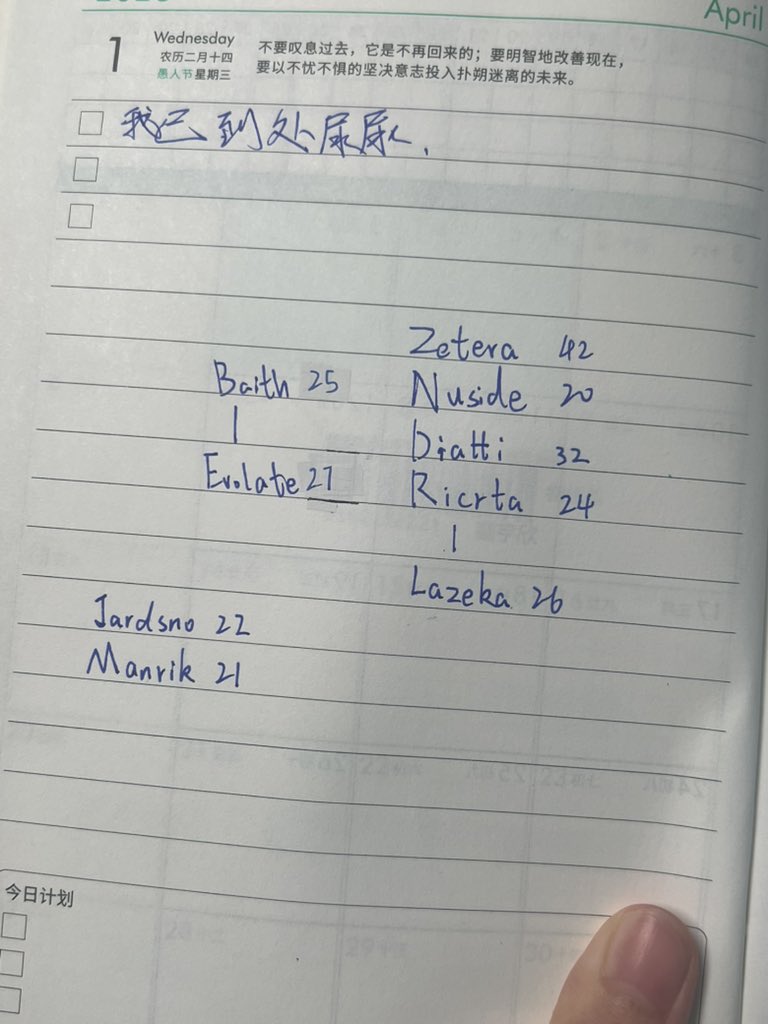 April
1
Wednesday
农历二月十四
愚人节 星期三
不要叹息过去，它是不再回来的；要明智地改善现在，
要以不忧不惧的坚决意志投入扑朔迷离的未来。
我已到处尿尿.
Zetera 42
Baith 25
Nuside 20
|
Diatti 32
Evolate 27
Ricrta 24
|
Lazeka 26
Jardsno 22
Manrik 21
今日计划